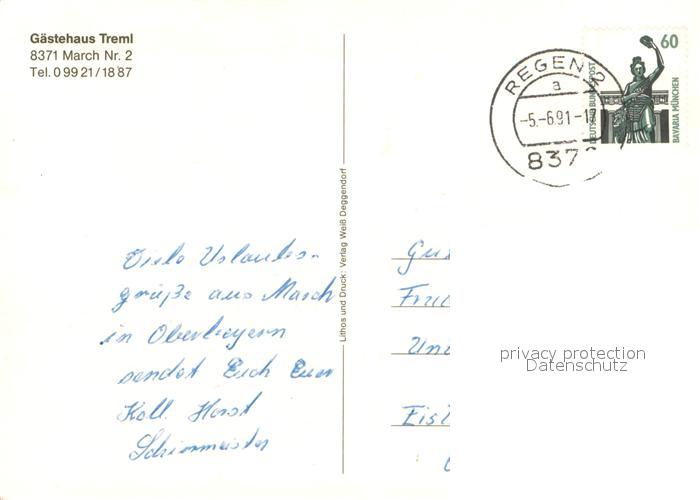 Gästehaus Treml
8371 March Nr. 2
Tel. 0 99 21 / 18 87
REGEN 2
a
-5.-6.91-1
837
60
DEUTSCHE BUNDESPOST
BAVARIA MÜNCHEN
Lithos und Druck: Verlag Weiß Deggendorf
Viele Urlaubs-
grüße aus March
in Oberbayern
sendet Euch Euer
Koll. Horst
Schirrmeister
privacy protection
Datenschutz